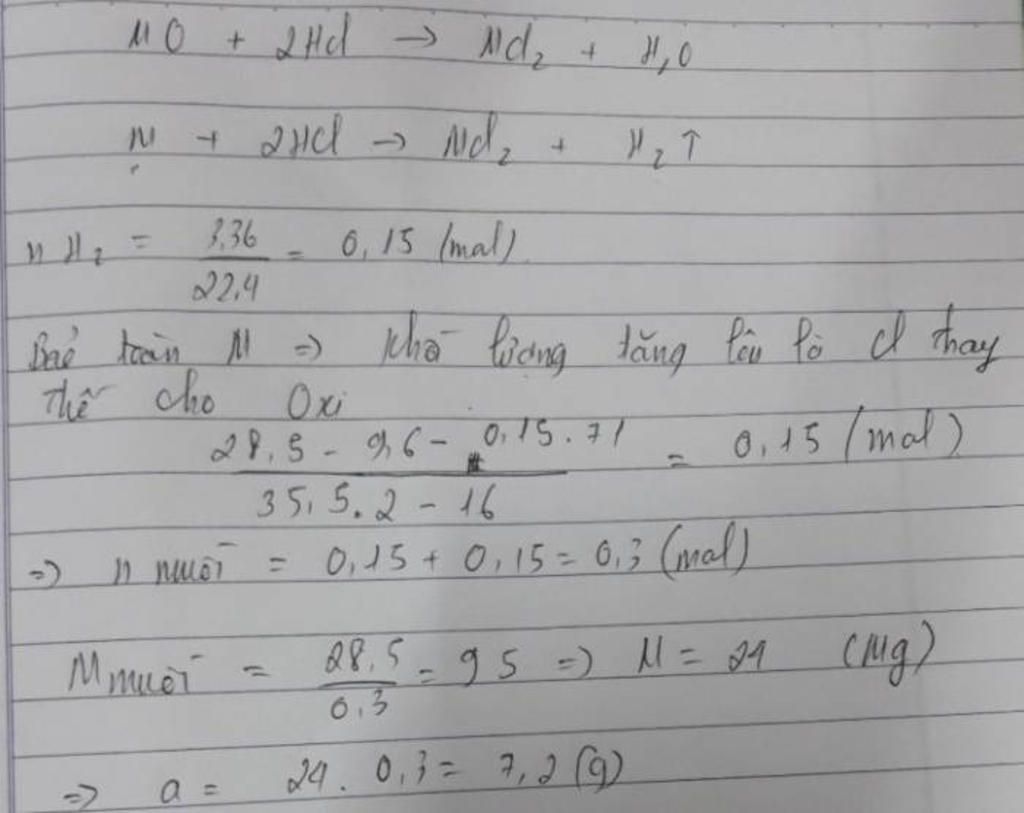 MO + 2HCl → MCl₂ + H₂O
M + 2HCl → MCl₂ + H₂↑
n H₂ = 3,36 / 22,4 = 0,15 (mol)
Bảo toàn M => khối lượng tăng lên là Cl thay
thế cho Oxi
28,5 - 9,6 - 0,15.71 / 35,5.2 - 16 = 0,15 (mol)
=> n muối = 0,15 + 0,15 = 0,3 (mol)
M muối = 28,5 / 0,3 = 95 => M = 24 (Mg)
=> a = 24. 0,3 = 7,2 (g)